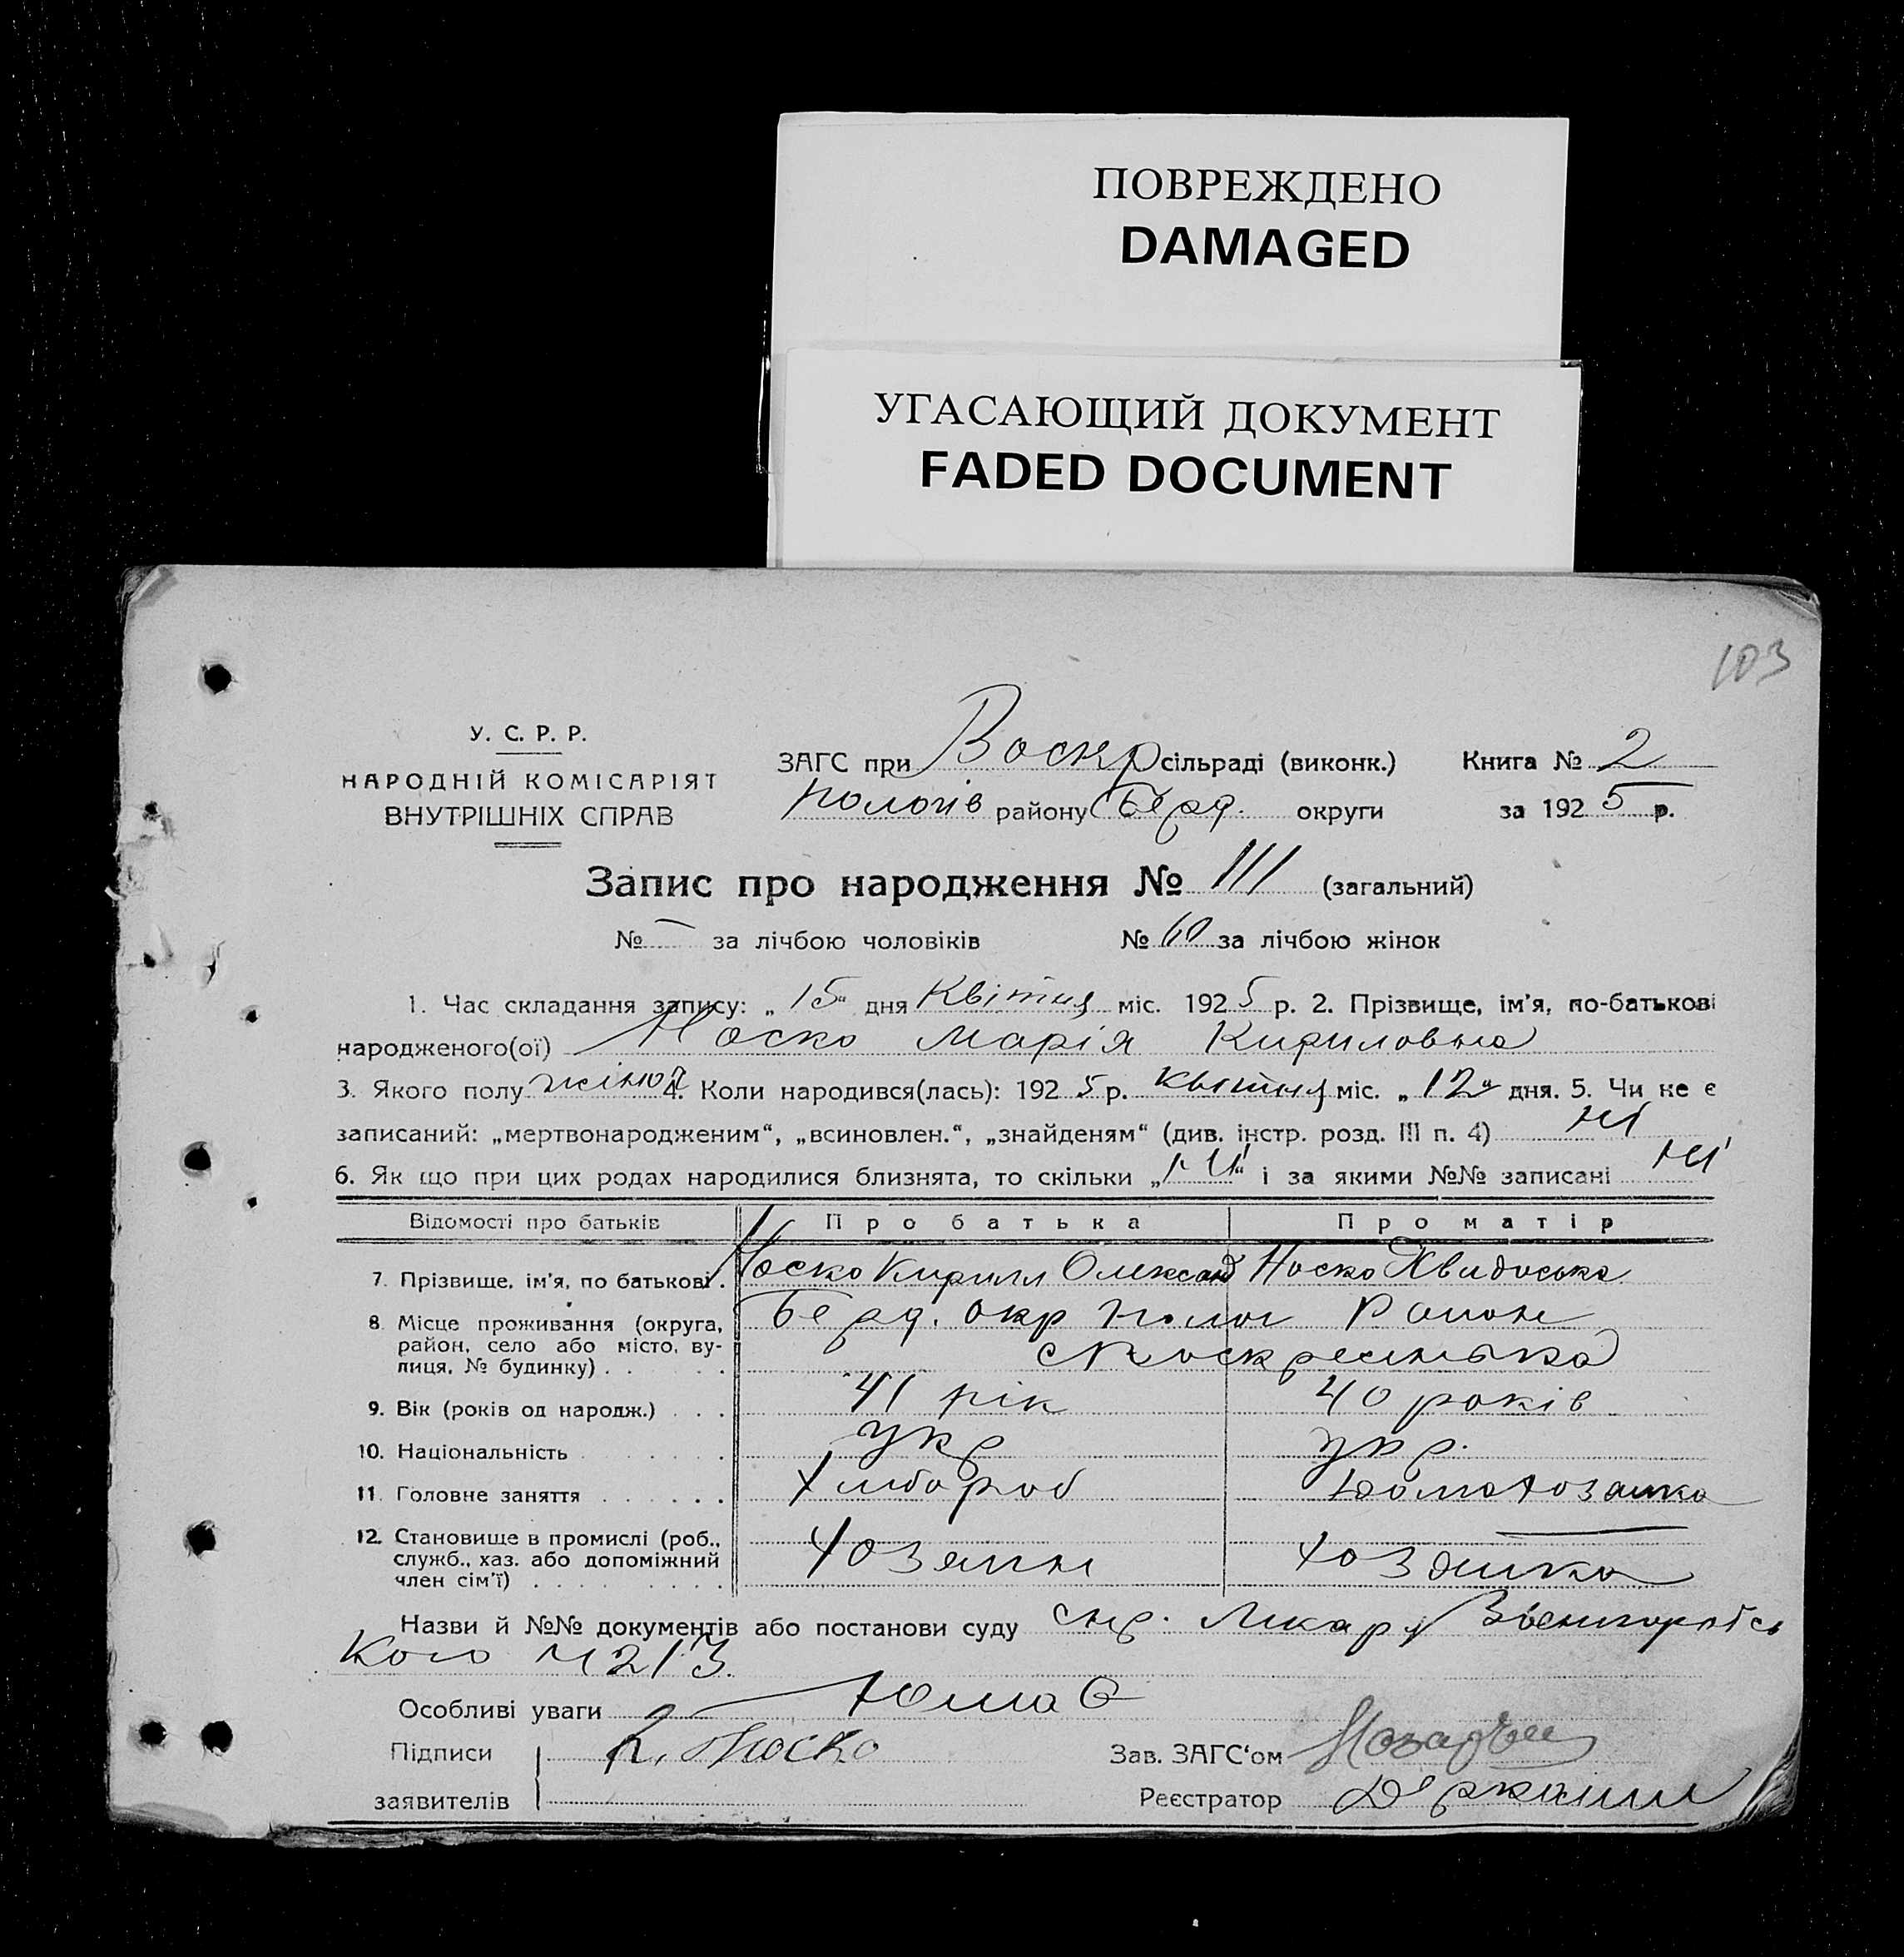 ПОВРЕЖДЕНО
DAMAGED
УГАСАЮЩИЙ ДОКУМЕНТ
FADED DOCUMENT
103
У. С. Р. Р.
НАРОДНІЙ КОМІСАРІЯТ
ВНУТРІШНІХ СПРАВ
ЗАГС при Воскр сільраді (виконк.) Книга № 2
Пологів району Берд. округи за 1925 р.
Запис про народження № 111 (загальний)
№ – за лічбою чоловіків № 60 за лічбою жінок
1. Час складання запису: „15“ дня Квітня міс. 1925 р. 2. Прізвище, ім'я, по-батькові
народженого(ої) Носко Марія Кириловна
3. Якого полу жіноч 4. Коли народився(лась): 1925 р. квітня міс. „12“ дня. 5. Чи не є
записаний: „мертвонародженим“, „всиновлен.“, „знайденям“ (див. інстр. розд. III п. 4) ні
6. Як що при цих родах народилися близнята, то скільки „ні“ і за якими №№ записані ні
Відомості про батьків Про батька Про матір
7. Прізвище, ім'я, по батькові . Носко Кирилл Олександ Носко Хвидоська
8. Місце проживання (округа, Берд. окр Полог Район
район, село або місто, ву- с Воскресенька
лиця, № будинку) . . . .
9. Вік (років од народж.) . . . 41 рік 40 років
10. Національність . . . . . укр укр.
11. Головне заняття . . . . . . Хлібороб Домохозяйка
12. Становище в промислі (роб.,
служб., хаз. або допоміжний Хозяин хозяйка
член сім'ї) . . . . . . . .
Назви й №№ документів або постанови суду спр. Лікаря
кого № 213.
Особливі уваги
Підписи К. Носко Зав. ЗАГС‘ом
заявителів Реєстратор